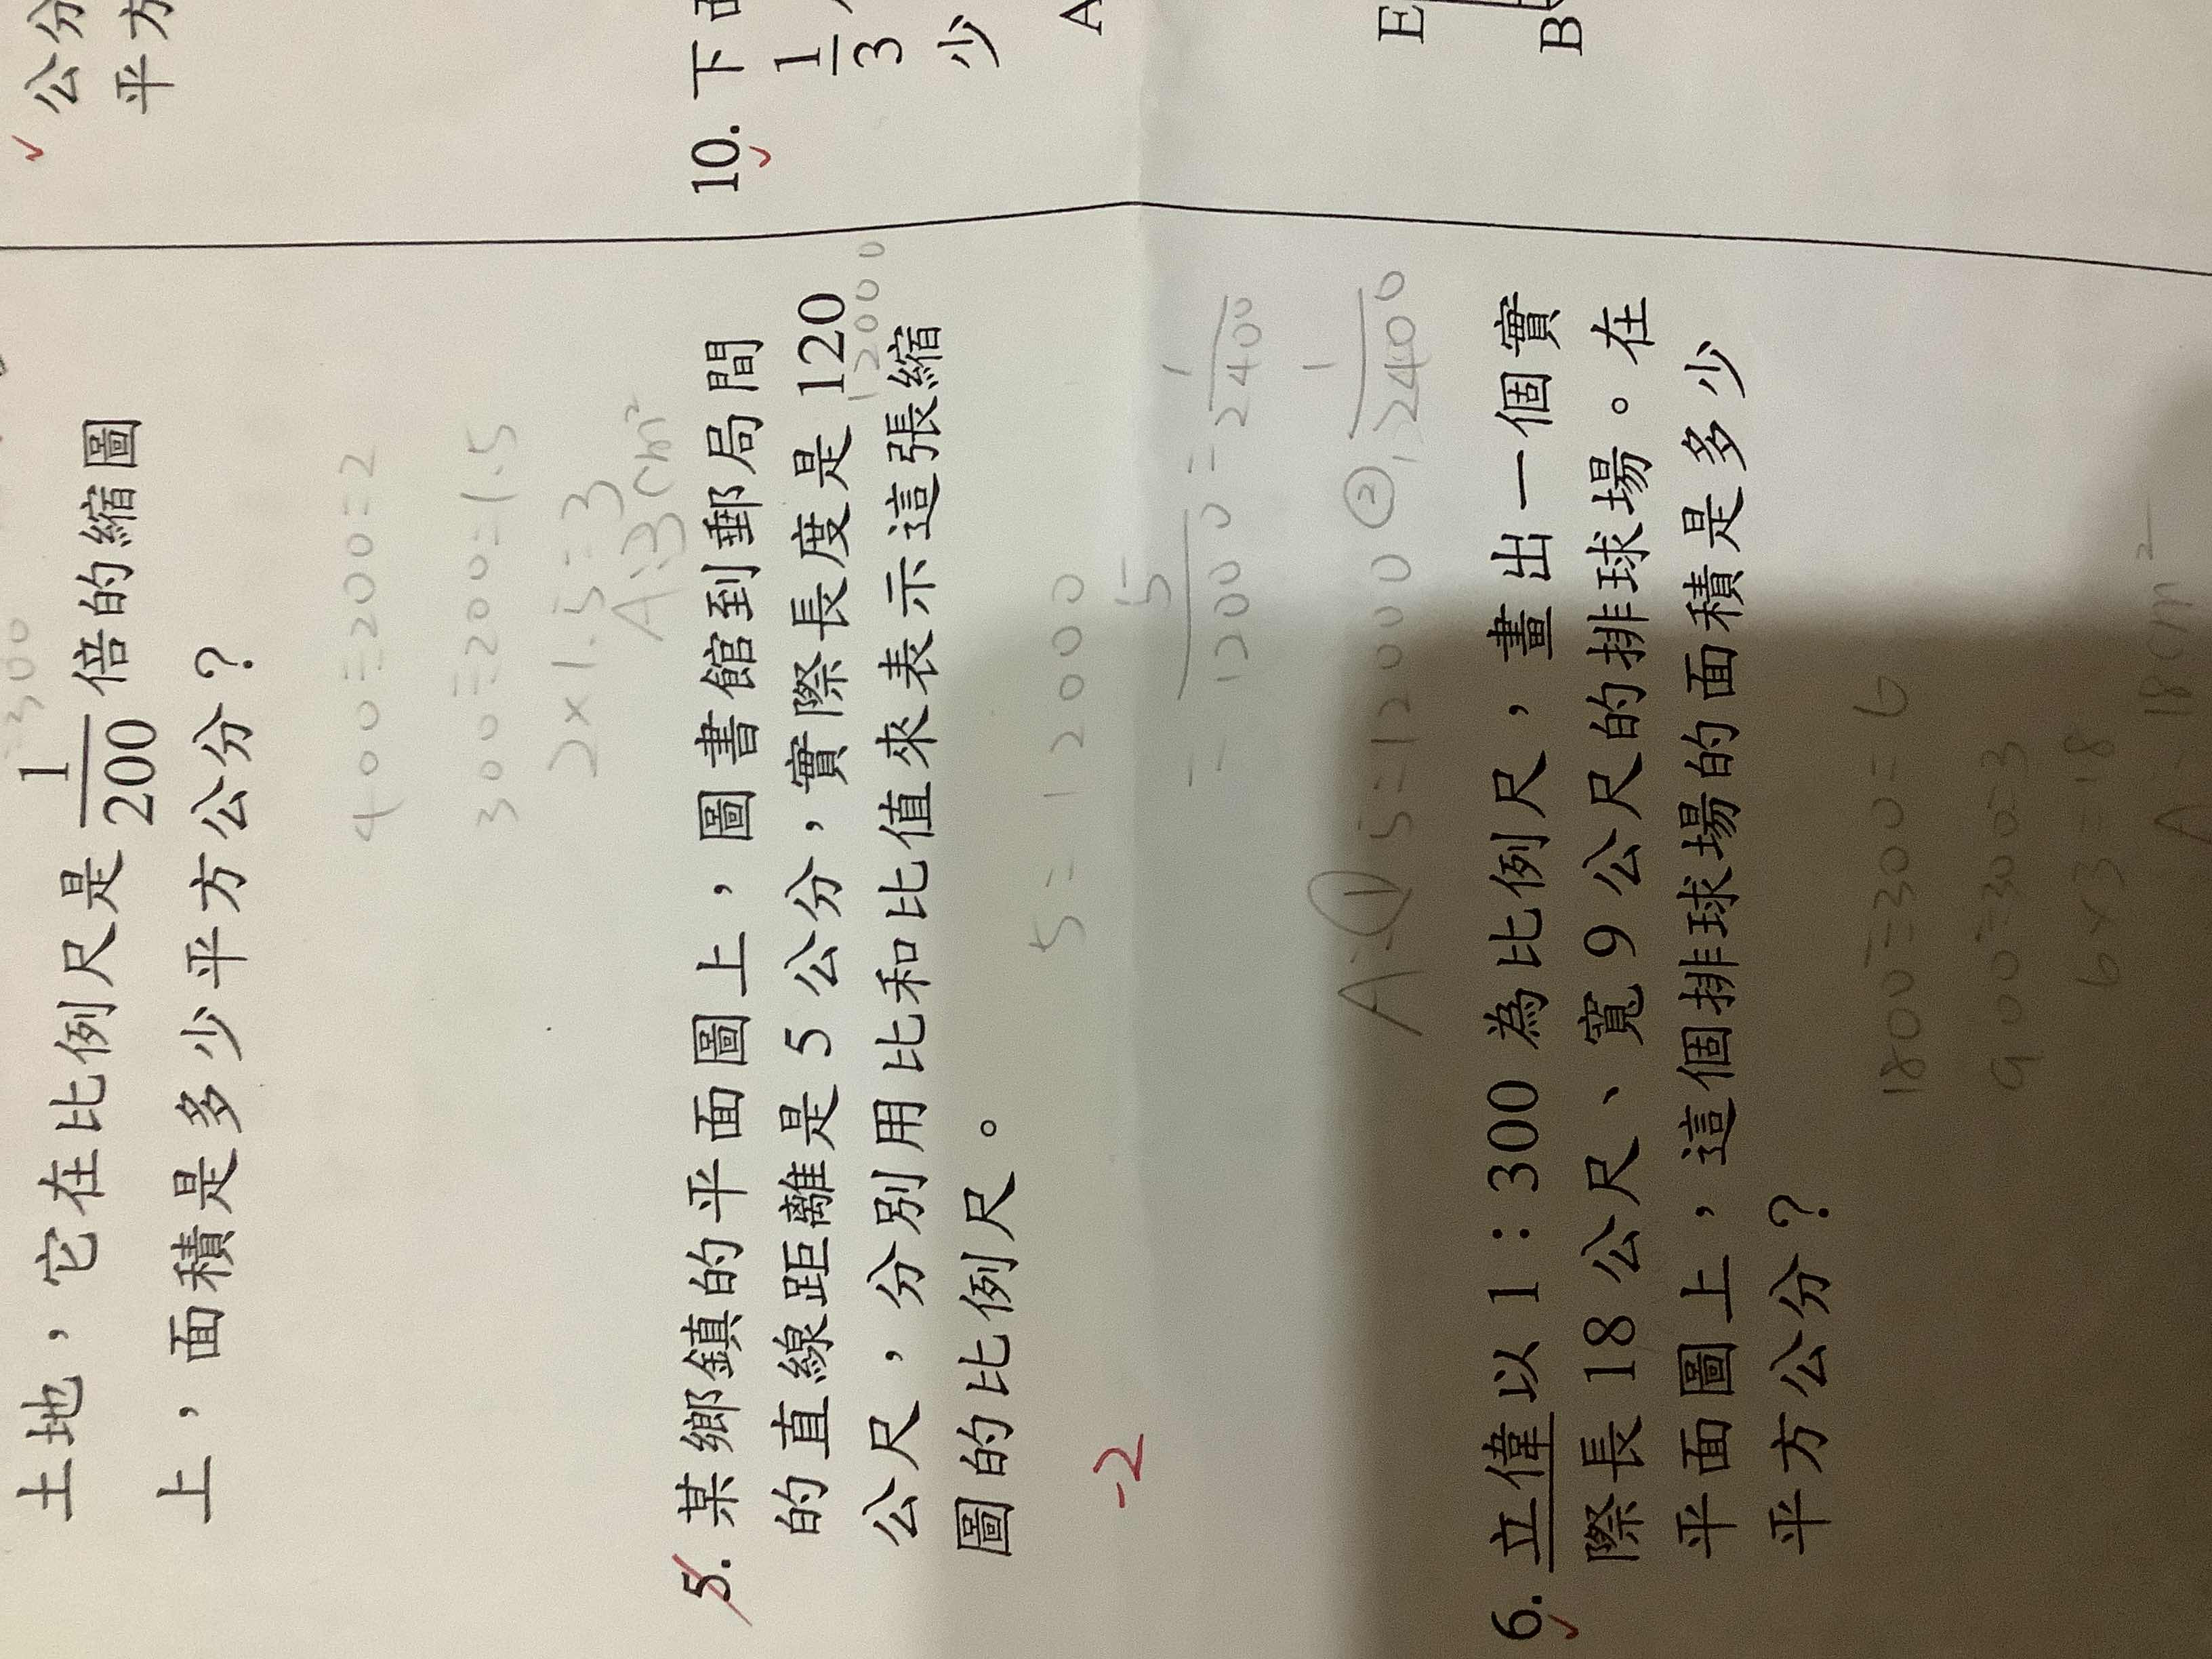 300
土地，它在比例尺是 1/200 倍的縮圖
上，面積是多少平方公分？
400÷200=2
300÷200=1.5
2×1.5=3
A:3cm²
5. 某鄉鎮的平面圖上，圖書館到郵局間
的直線距離是 5 公分，實際長度是 120
12000
公尺，分別用比和比值來表示這張縮
圖的比例尺。
5:12000
-2
= 5/12000 = 1/2400
A:① 5:12000 ② 1/2400
6. 立偉以 1：300 為比例尺，畫出一個實
際長 18 公尺、寬 9 公尺的排球場。在
平面圖上，這個排球場的面積是多少
平方公分？
1800÷300=6
900÷300=3
6×3=18
A:18cm²
公分
平方
10. 下
1/3
少
A
E
B